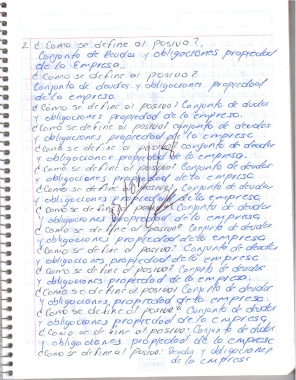 2. ¿Como se define al pasivo?.
Conjunto de Deudas y obligaciones propiedad
de la Empresa..
¿Como se define al pasivo?
Conjunto de deudas y obligaciones propiedad
de la empresa.
¿Como se define al pasivo? Conjunto de deudas
y obligaciones propiedad de la empresa.
¿Como se define al pasivo? conjunto de deudas
y obligaciones propiedad de la empresa
¿Como se define al pasivo? conjunto de deudas
y obligaciones propiedad de la empresa.
¿Como se define al pasivo? Conjunto de deudas
y obligaciones propiedad de la empresa.
¿Como se define al pasivo? Conjunto de deudas
y obligaciones propiedad de la empresa
¿Como se define al pasivo? Conjunto de deudas
y obligaciones propiedad de la empresa
¿Como se define al pasivo? Conjunto de deudas
y obligaciones propiedad de la empresa
¿Como se define al pasivo? Conjunto de deudas
y obligaciones, propiedad de la empresa
¿Como se define al pasivo? Conjunto de deudas
y obligaciones propiedad de la empresa.
¿Como se define al pasivo? Conjunto de deudas
y obligaciones, propiedad de la empresa.
¿Como se define al pasivo? Conjunto de deudas
y obligaciones propiedad de la empresa
¿Como se define al pasivo: Conjunto de deudas
y obligaciones propiedad de la empresa
¿Como se define al pasivo: Deudas y obligaciones
de la empresa